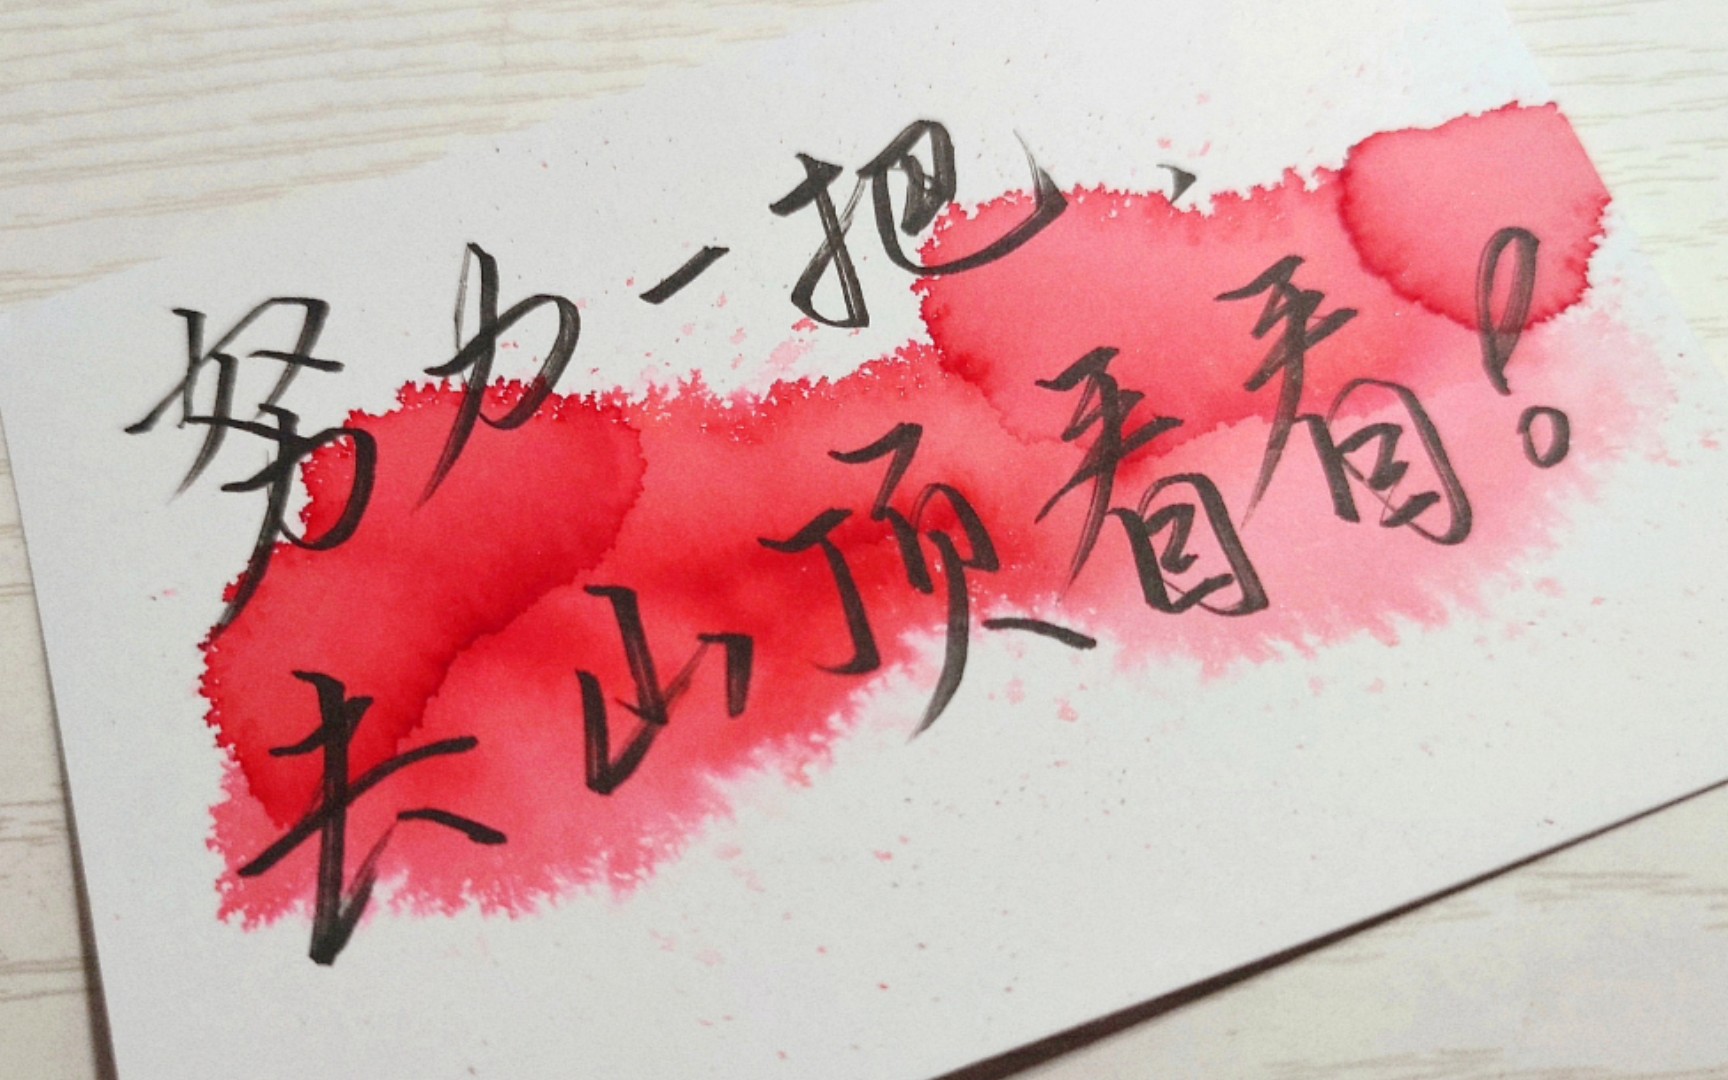 努力一把、
去山顶看看！